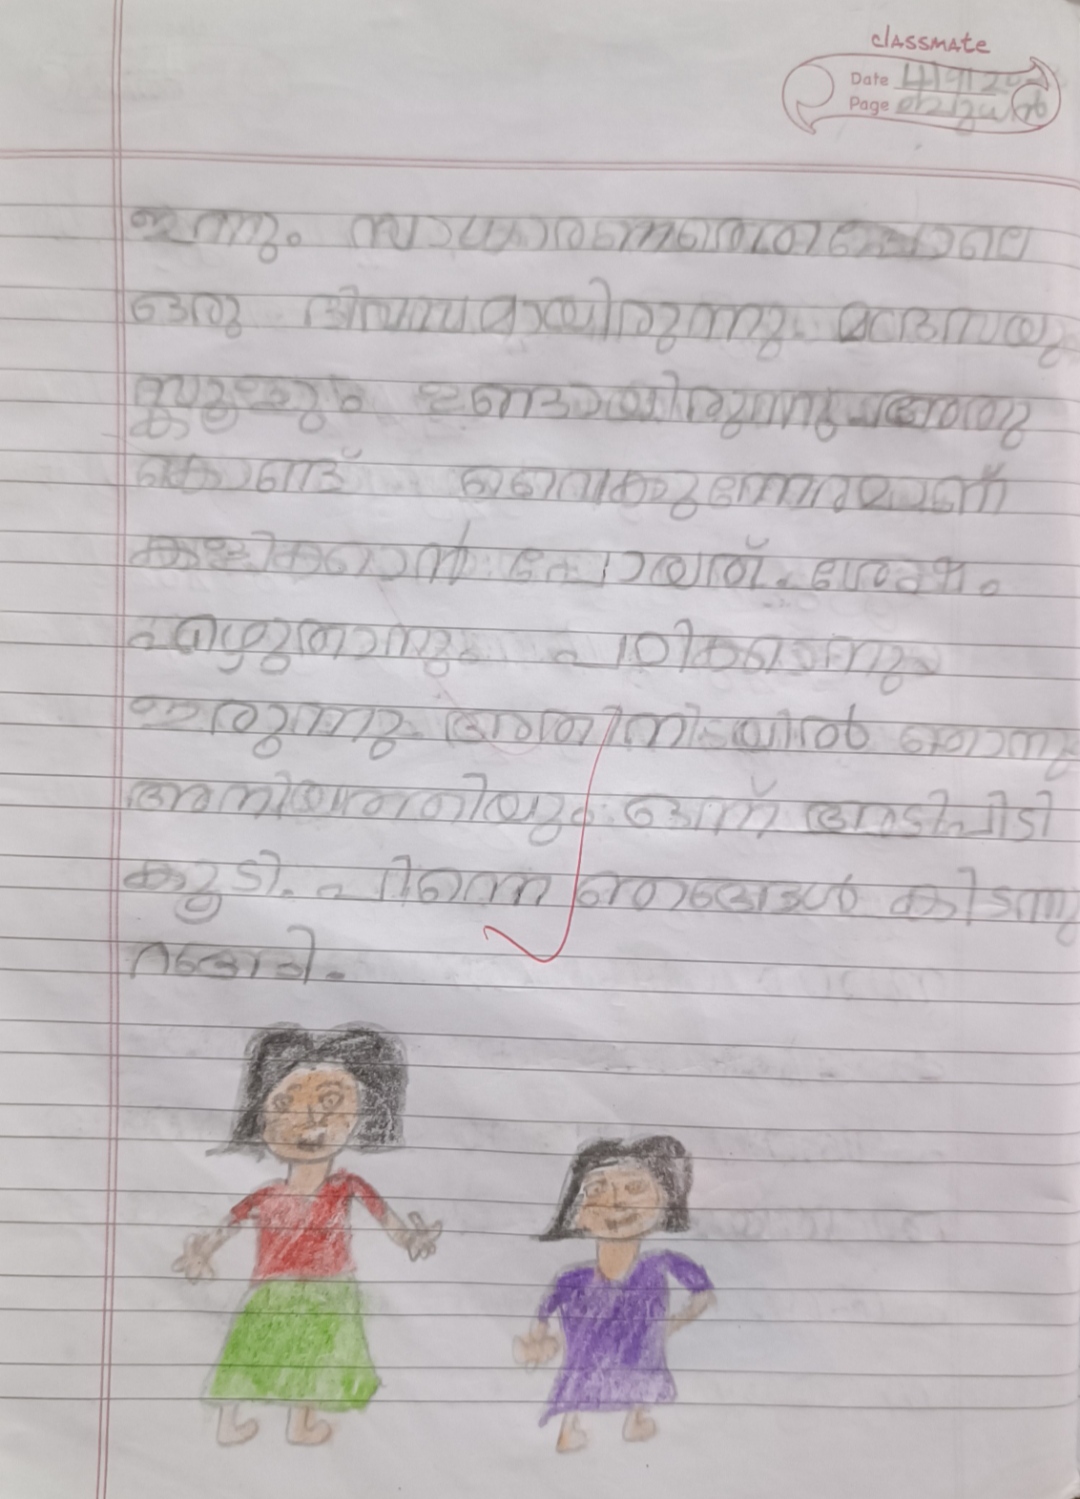 classmate
Date 4/9/20
Page ബുധൻ
ഇന്നും സാധാരണത്തെപോലെ
ഒരു ദിവസമായിരുന്നു. മദ്രസയും
സ്കൂളും ഉണ്ടായിരുന്നു. അതു
കൊണ്ട് വൈകുന്നേരമാണ്
കളിക്കാൻ പോയത്. ശേഷം
എഴുതാനും പഠിക്കാനും
ഇരുന്നു. അതിനിടയിൽ ഞാനു
അനിയത്തിയും ഒന്ന് അടിപിടി
കൂടി. പിന്നെ ഞങ്ങൾ കിടന്നു
റങ്ങി.